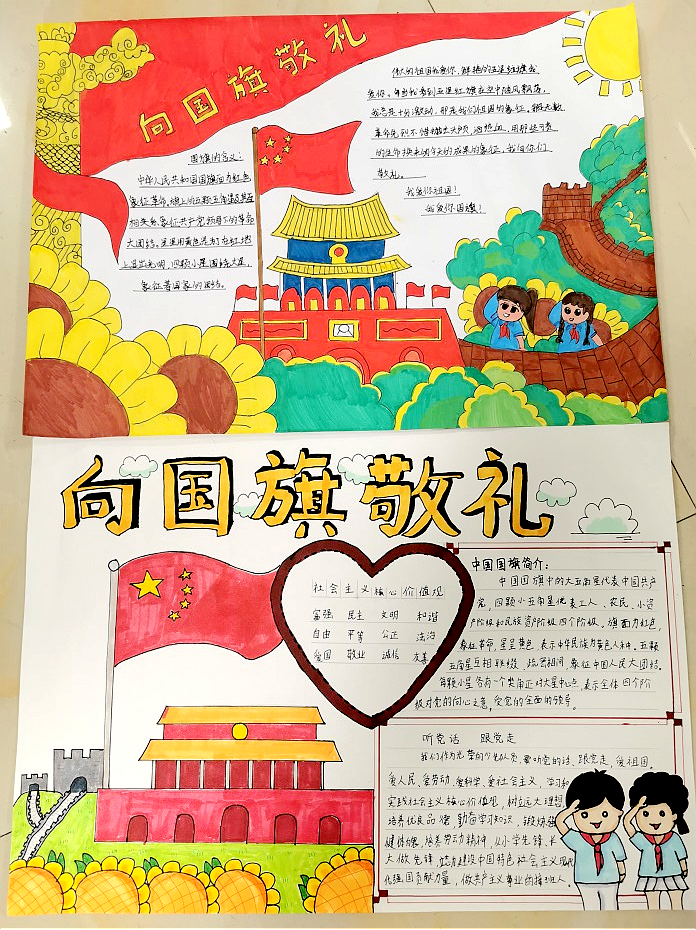 向国旗敬礼
国旗的含义:
中华人民共和国国旗面为红色
象征革命,旗上的五颗五角星及其
相关象征共产党领导下的革命
大团结。星星用黄色是为了在红地
上显出光明,四颗小星围绕大星,
象征着国家的团结。
伟大的祖国我爱你,鲜艳的五星红旗我
爱你。每当我看到五星红旗在空中随风飘荡,
我总是十分激动,那是我们祖国的象征。
革命先烈不惜抛头颅,洒热血,用那些可贵
的生命换来的今天的成果的象征,我向你们
敬礼。
我爱你祖国!
我爱你国旗!
向国旗敬礼
社会主义核心价值观
富强 民主 文明 和谐
自由 平等 公正 法治
爱国 敬业 诚信 友善
中国国旗简介:
中国国旗中的大五角星代表中国共产
党,四颗小五角星代表工人、农民、小资
产阶级和民族资产阶级四个阶级。旗面为红色,
象征革命,星呈黄色,表示中华民族为黄色人种。五颗
五角星互相联缀、疏密相间,象征中国人民大团结。
每颗小星各有一个尖角正对大星中心点,表示全体四个阶
级对党的向心之意,受党的全面的领导。
听党话 跟党走
我们作为光荣的少先队员,要听党的话,跟党走,爱祖国,
爱人民,爱劳动,爱科学,爱社会主义,学习和
实践社会主义核心价值观,树立远大理想,
培养优良品德,勤奋学习知识,锻炼强
健体魄,培养劳动精神,从小学先锋,长
大做先锋,努力建设中国特色社会主义现代
化强国贡献力量,做共产主义事业的接班人。